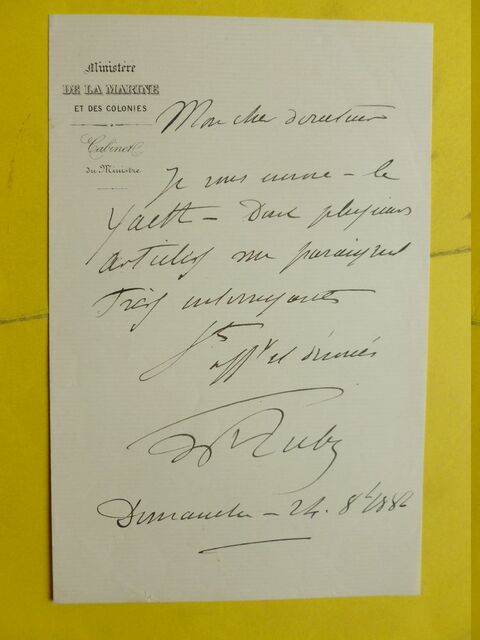 Ministère
DE LA MARINE
ET DES COLONIES
Cabinet
du Ministre
Mon cher directeur
Je vous envoie - le
Yacht - Dont plusieurs
articles me paraissent
Très intéressants
et dévoués
Dimanche - 24. 8bre 188